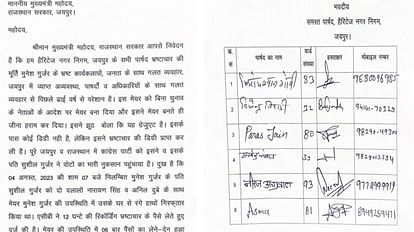 माननीय मुख्यमंत्री महोदय,
राजस्थान सरकार, जयपुर।
महोदय,
श्रीमान मुख्यमंत्री महोदय, राजस्थान सरकार आपसे निवेदन
है कि हम हैरिटेज नगर निगम, जयपुर के सभी पार्षद भ्रष्टाचार की
मूर्ति मुनेश गुर्जर के भ्रष्ट कार्यकलापों, जनता के साथ गलत व्यवहार,
जयपुर में व्याप्त अव्यवस्था, पार्षदों व अधिकारियों के साथ गलत
व्यवहार से पिछले ढाई वर्ष से परेशान है। इसको बिना चुनाव
के नेताओं के आदेश पर मेयर बना दिया और इसने मेयर बनते ही
जीना हराम कर दिया। इसने झूठ बोला कि यह ग्रेजुएट है। इसके
पास कोई डिग्री नहीं है, लेकिन इसने भ्रष्टाचार की डिग्री प्राप्त कर
ली है। पूरे जयपुर व राजस्थान में कांग्रेस पार्टी को इसने व इसके
पति सुशील गुर्जर ने वोटों का भारी नुकसान पहुंचाया है। दुख है कि
04 अगस्त, 2023 की शाम 07 बजे निलम्बित मुनेश गुर्जर के पति
सुशील गुर्जर को दो दलालों नारायण सिंह व अनिल दुबे के साथ
मेयर मुनेश गुर्जर की उपस्थिति में उसके घर से रंगे हाथों गिरफ्तार
किया था। एसीबी ने 12 घण्टे की रिकॉर्डिंग भ्रष्टाचार के पैसे लेते हुए
दर्ज की है। मेयर की उपस्थिति में 08 बार पैसों का लेने-देन हुआ
भवदीय
समस्त पार्षद, हैरिटेज नगर निगम,
जयपुर।
क्र. सं. पार्षद का नाम वार्ड संख्या हस्ताक्षर मोबाईल नम्बर
1 83
2 32
3 Paras Jain 80
4 39
5 93 9778999919
6 Asma 81 8949259471